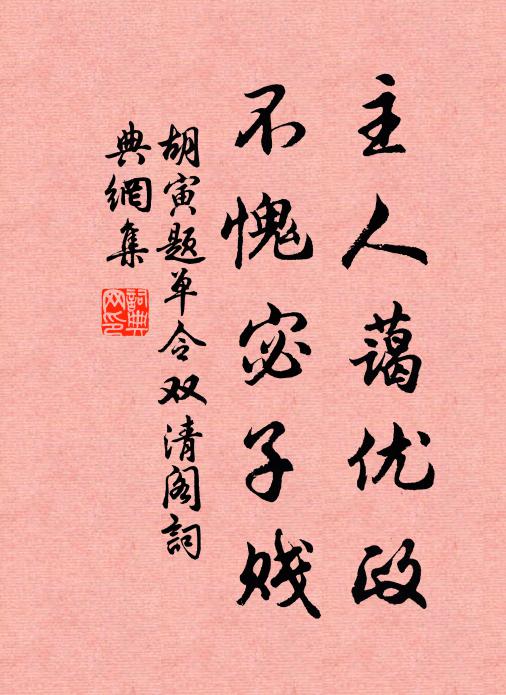 主人蔼优政
不愧宓子贱
胡寅题单令双清阁詞
典網集
詞典网印